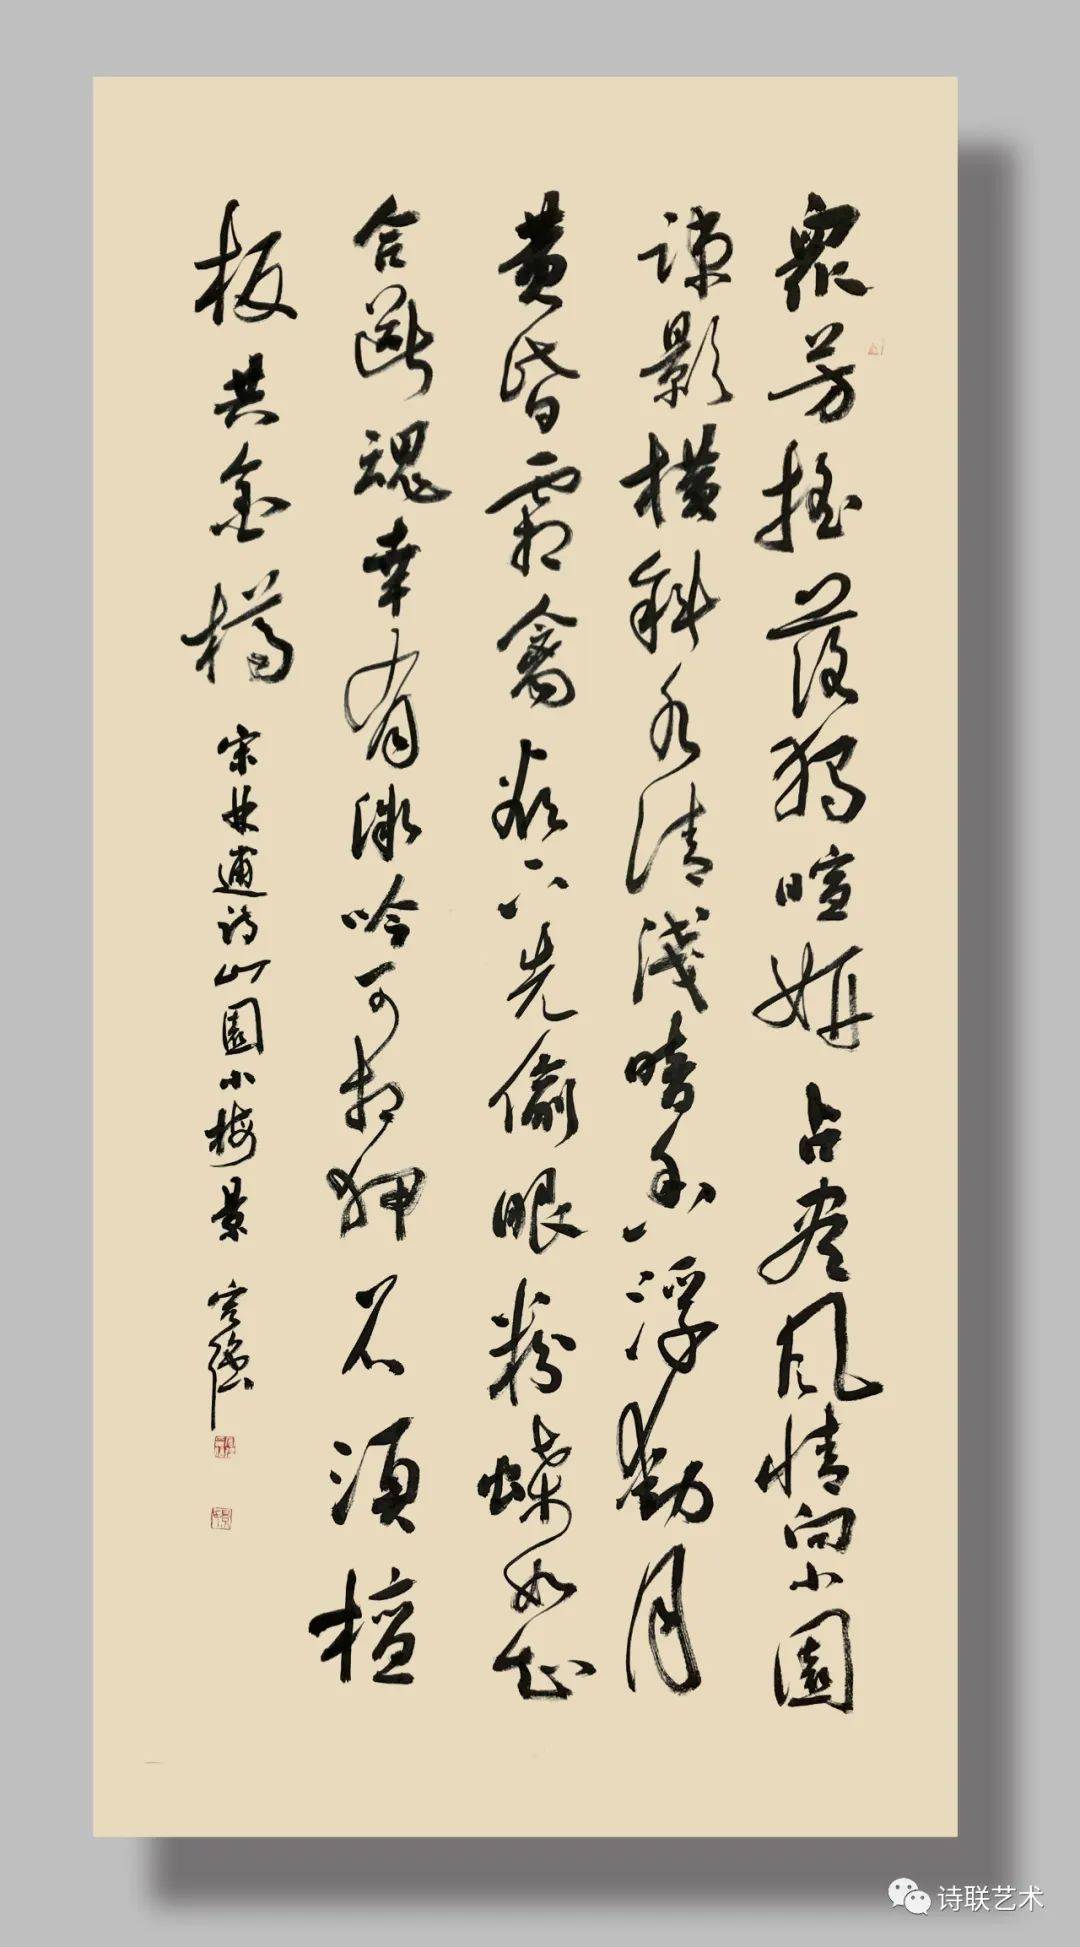 眾芳搖落獨暄妍占盡風情向小園
疎影橫斜水清淺暗香浮動月
黃昏霜禽欲下先偷眼粉蝶如知
合斷魂幸有微吟可相狎不須檀
板共金樽
宋林逋詩山園小梅景
诗联艺术